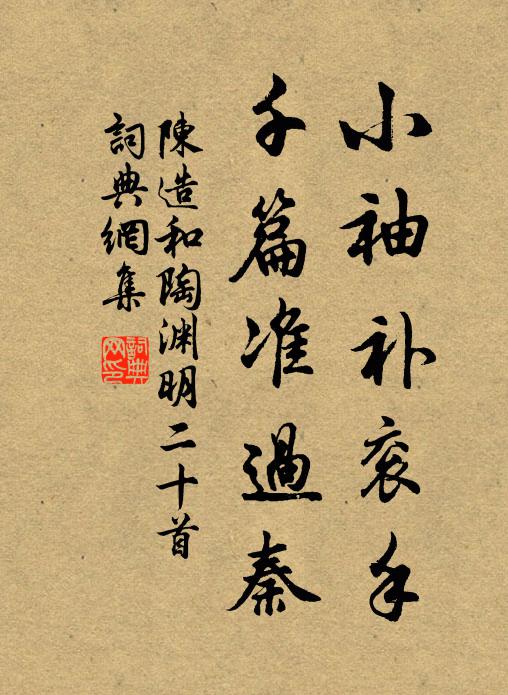 小袖补衮手
千篇准過秦
陳造和陶渊明二十首
詞典網集
詞典网印